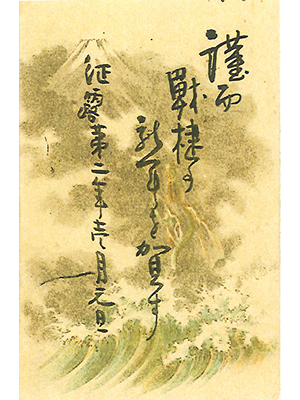 謹而
戦捷の
新年を賀す
征露第二年壱月元旦